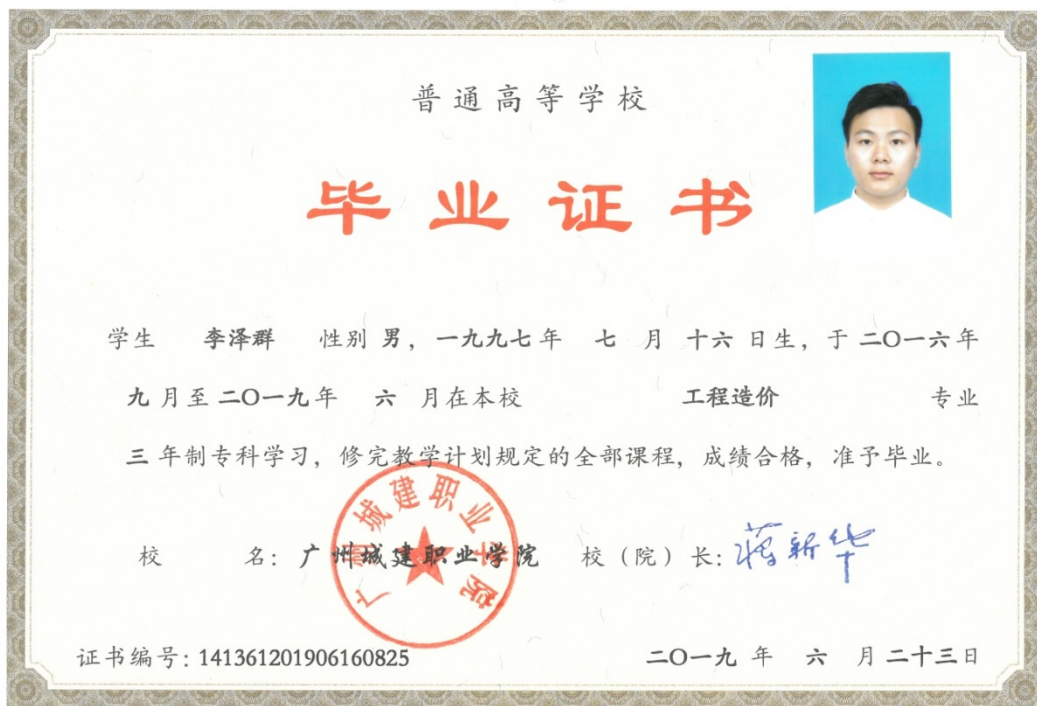 普通高等学校
毕业证书
学生 李泽群 性别 男，一九九七年 七 月 十六 日生，于 二〇一六年
九 月至 二〇一九年 六 月在本校 工程造价 专业
三 年制专科学习，修完教学计划规定的全部课程，成绩合格，准予毕业。
广州城建职业学院
校 名：广州城建职业学院 校（院）长：蒋新华
证书编号：141361201906160825 二〇一九 年 六 月 二十三日